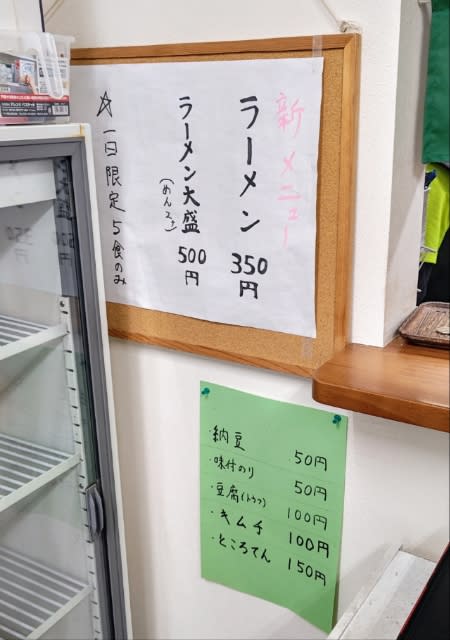 新メニュー
ラーメン 350円
ラーメン大盛 500円
(めん2コ)
☆一日限定5食のみ
・納豆 50円
・味付のり 50円
・豆腐(トウフ) 100円
・キムチ 100円
・ところてん 150円